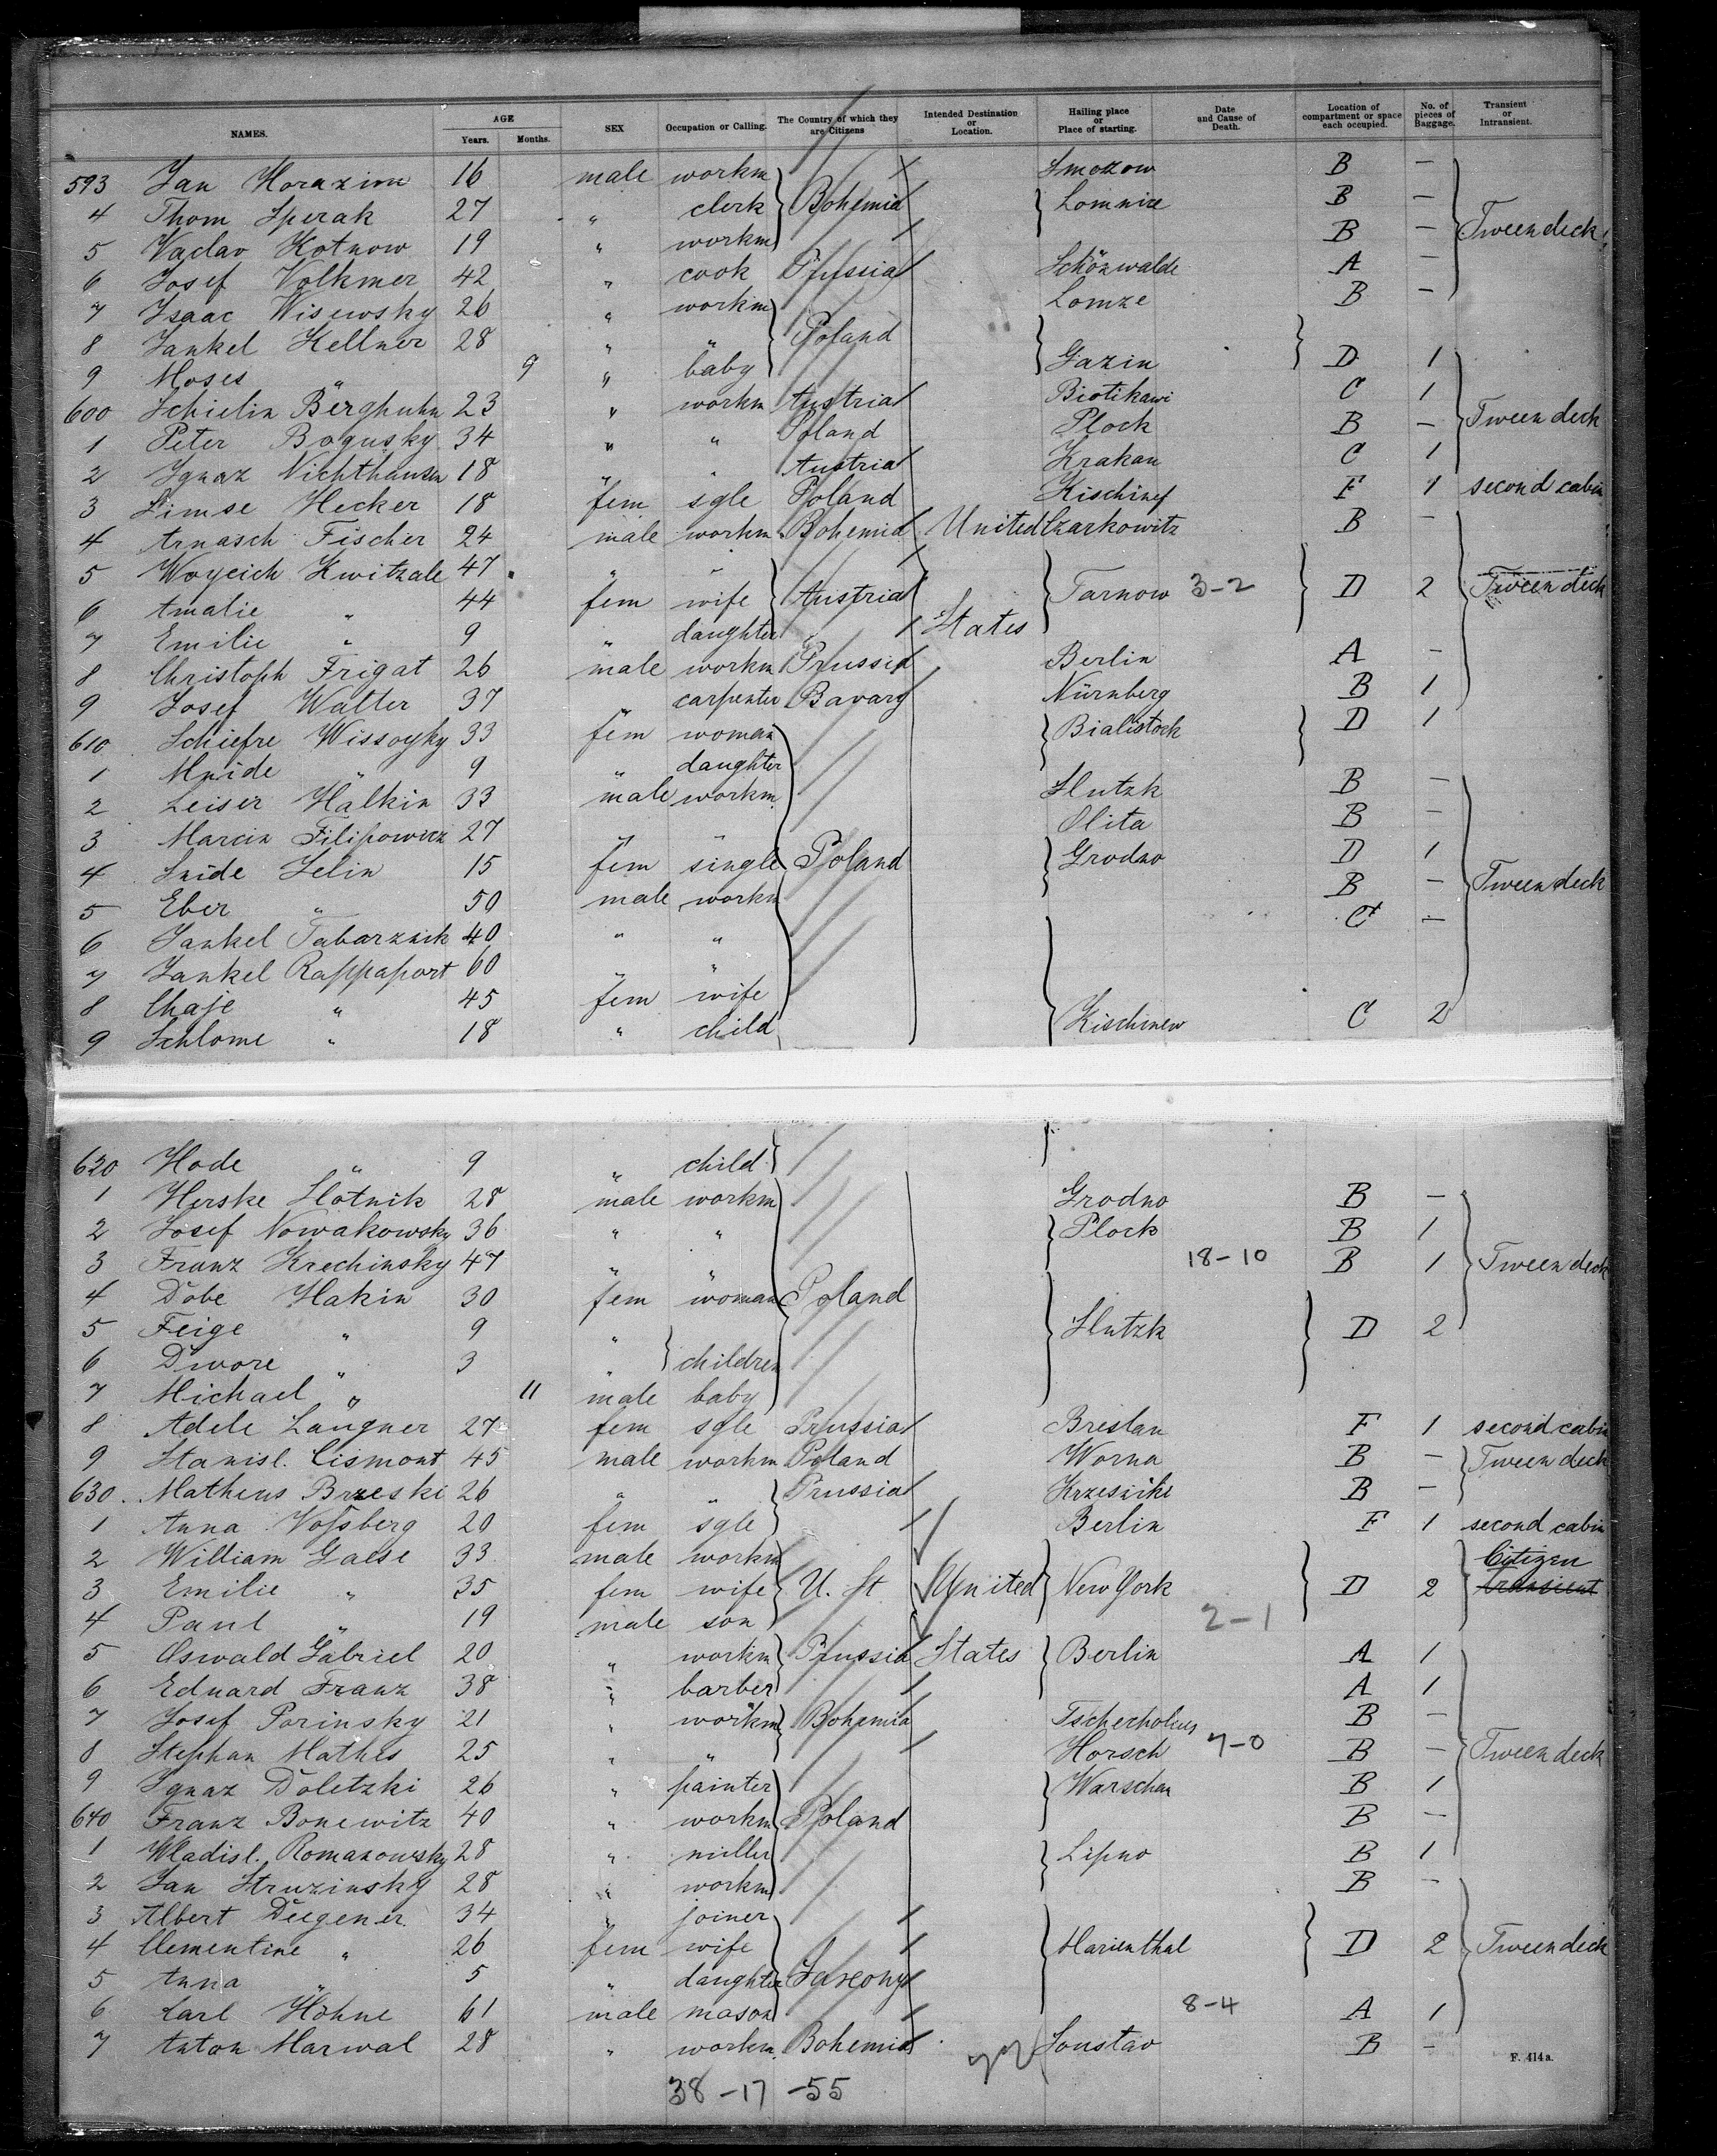 NAMES. AGE Years. Months. SEX Occupation or Calling. The Country of which they are Citizens Intended Destination or Location. Hailing place or Place of starting. Date and Cause of Death. Location of compartment or space each occupied. No. of pieces of Baggage. Transient or Intransient.
593 Jan Horazim 16 male workm Smozow B —
4 Thom Sperak 27 " clerk Bohemia Lomnize B — Tweendeck
5 Vaclav Kotnow 19 " workm B —
6 Josef Volkmer 42 " cook Prussia Schönwalde A —
7 Isaac Wisewsky 26 " workm Lomze B —
8 Jankel Kellner 28 " " Poland
9 Moses " 9 " baby Gazin D 1
600 Schielin Berghuhn 23 " workm Austria Biotikawi C 1
1 Peter Bogusky 34 " " Poland Plock B — Tweendeck
2 Ignaz Nichthausen 18 " " Austria Krakau C 1
3 Simse Hecker 18 fem sgle Poland Kischinef F 1 second cabin
4 Arnasch Fischer 24 male workm Bohemia United Czarkowitz B —
5 Woyeich Kwitzale 47 " "
6 Amalie " 44 fem wife Austria Tarnow 3-2 D 2 Tweendeck
7 Emilie " 9 " daughter States
8 Christoph Frigat 26 male workm Prussia Berlin A —
9 Josef Walter 37 " carpenter Bavary Nürnberg B 1
610 Schiefre Wissoyky 33 fem woman Bialistock D 1
1 Mnide " 9 " daughter
2 Leiser Halkin 33 male workm Slutzk B —
3 Marcin Filipowicz 27 " " Olita B —
4 Snide Selin 15 fem single Poland Grodno D 1
5 Eber " 50 male workm B — Tweendeck
6 Jankel Tabarznik 40 " " C —
7 Jankel Rappaport 60 " "
8 Chaje " 45 fem wife
9 Schlome " 18 " child Kischinew C 2
620 Hode " 9 " child
1 Herske Slotnik 28 male workm Grodno B —
2 Josef Nowakowsky 36 " " Plock B 1
3 Franz Krechinsky 47 " " 18-10 B 1 Tweendeck
4 Dobe Hakin 30 fem woman Poland
5 Feige " 9 " Slutzk D 2
6 Dwore " 3 " children
7 Michael " 11 male baby
8 Adele Langner 27 fem sgle Prussia Breslau F 1 second cabin
9 Stanisl. Cismont 45 male workm Poland Worna B — Tweendeck
630 Matheus Brzeski 26 " " Prussia Krzesnike B —
1 Anna Voßberg 20 fem sgle Berlin F 1 second cabin
2 William Gaese 33 male workm Citizen
3 Emilie " 35 fem wife U. St United New York D 2 transient
4 Paul " 19 male son 2-1
5 Oswald Gabriel 20 " workm Prussia States Berlin A 1
6 Eduard Franz 38 " barber A 1
7 Josef Porinsky 21 " workm Bohemia B —
8 Stephan Mathes 25 " " Horsch 7-0 B — Tweendeck
9 Ignaz Doletzki 26 " painter Warschau B 1
640 Franz Bonewitz 40 " workm Poland B —
1 Wladisl. Romanowsky 28 " miller Lipno B 1
2 Jan Struzinsky 28 " workm B —
3 Albert Degener 34 " joiner
4 Clementine " 26 fem wife Marienthal D 2 Tweendeck
5 Anna " 5 " daughter Saxony
6 Carl Höhne 61 male mason 8-4 A 1
7 Anton Marwal 28 " workm Bohemia Soustav B —
F. 414a.
38-17-55